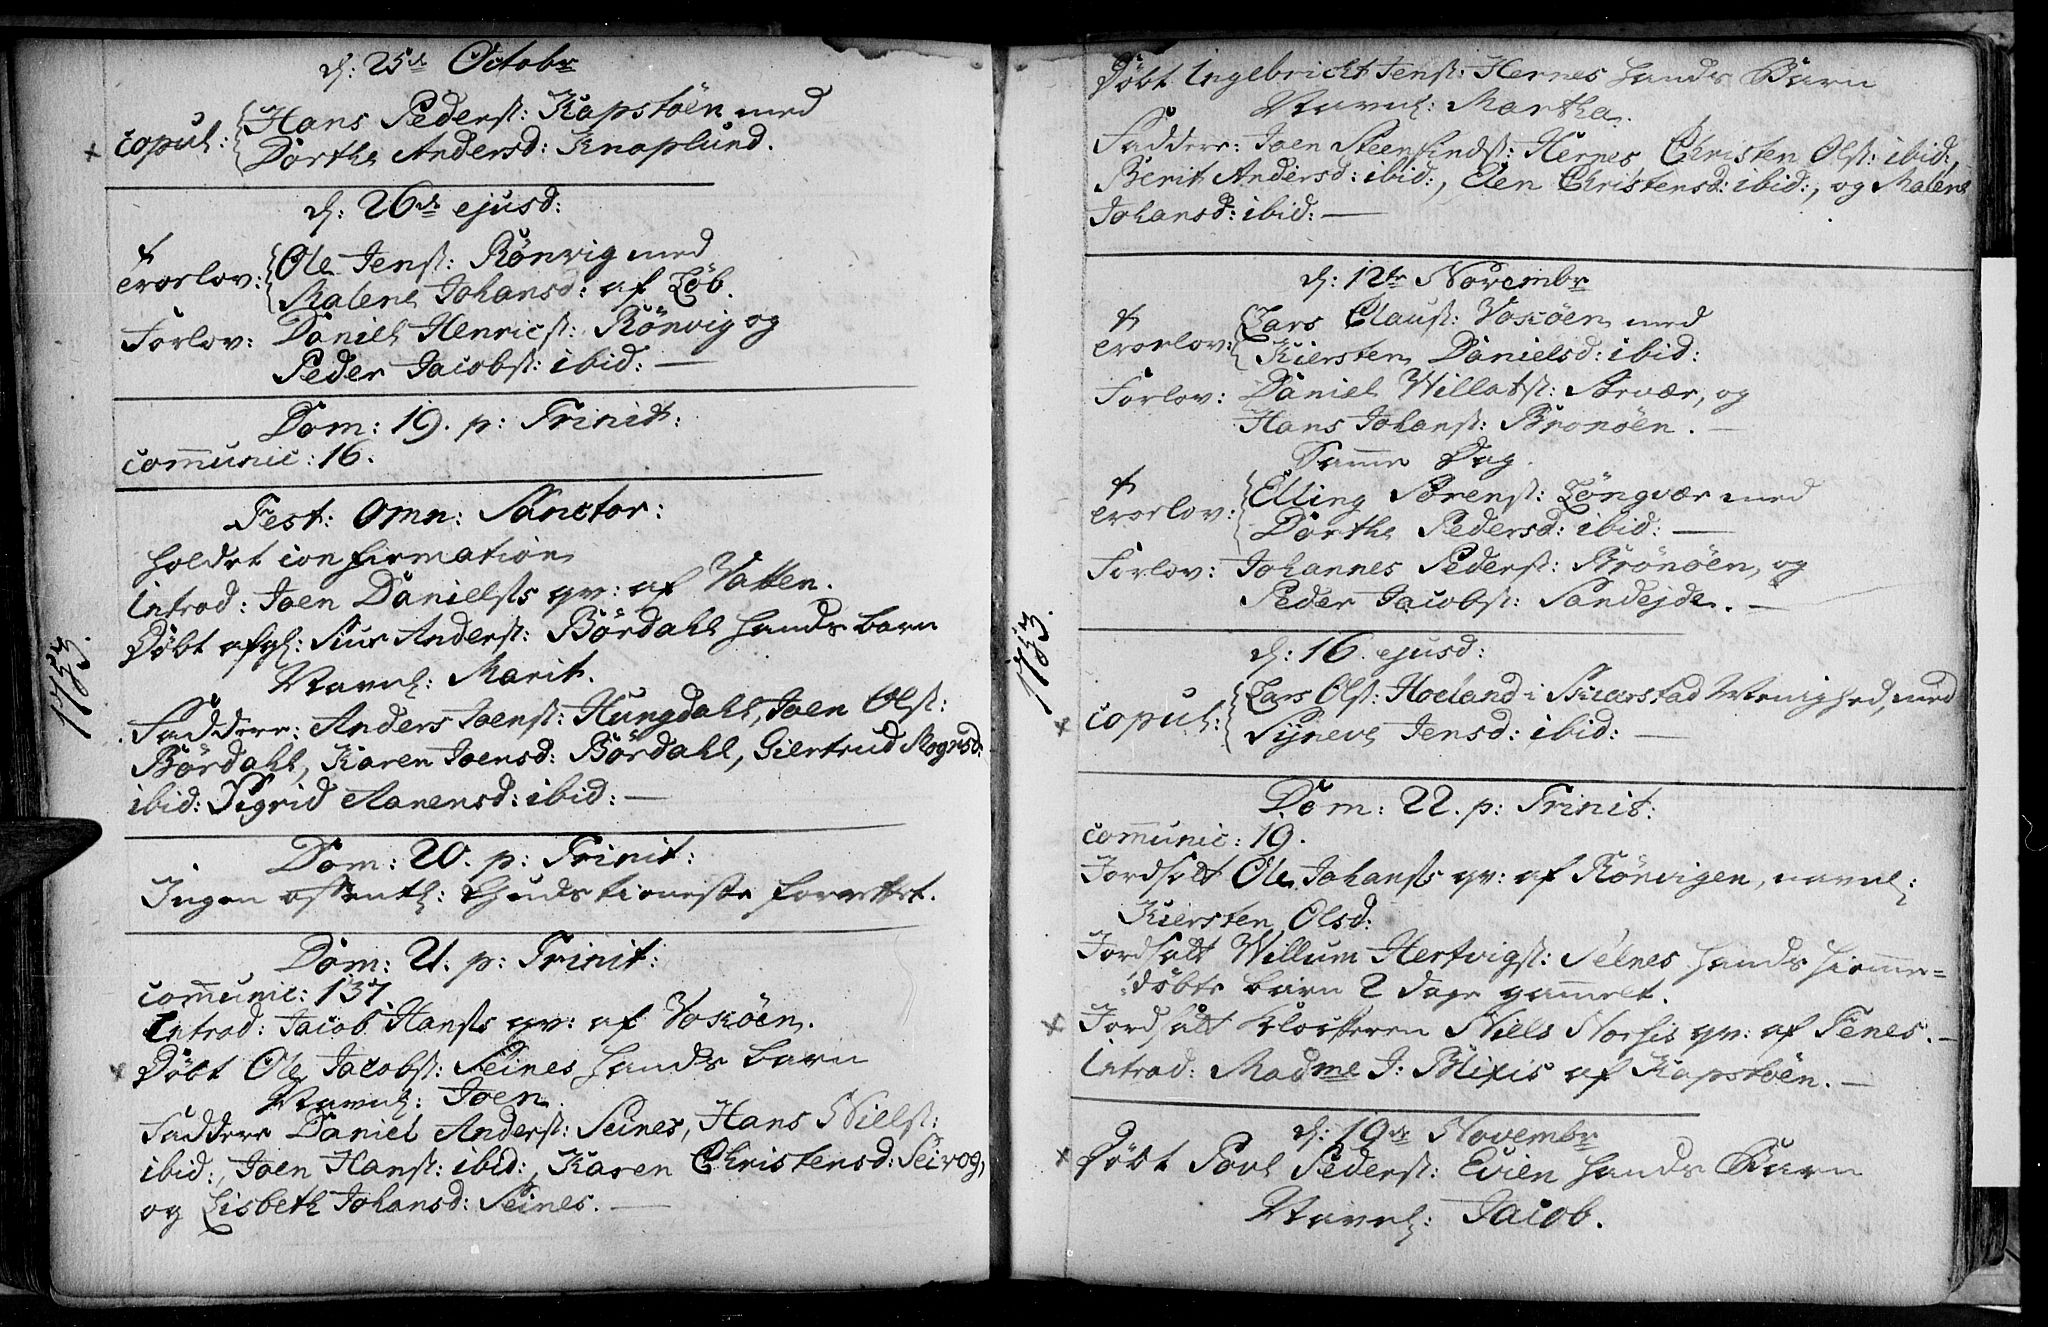 d: 25de Octobr
copul: Hans Peders: Kapstöen med
Dorthe Andersd: Knaplund.
d: 26de ejusd:
trorlov: Ole Jens: Rönvig med
Malene Johansd: af Löb.
Forlov: Daniel Henrics: Rönvig og
Peder Jacobs: ibid: —
Dom: 19. p: Trinit:
communic: 16.
Fest: Omn: Sanctor:
holdet confirmation
Introd: Joen Danielss qv: af Vatten.
Döbt afgl: Siur Anders: Bördahl hands barn
Navnl: Marit.
Faddere: Anders Joens: Hungdahl, Joen Ols:
Bördahl, Karen Joensd: Bördahl, Giertrud Mognsd:
ibid: Sigrid Aanensd: ibid: —
Dom: 20. p: Trinit:
Ingen offentl: Gudstieneste forrettet.
Dom: 21. p: Trinit:
communic: 137
Introd: Jacob Hanss qv: af Voxöen.
Döbt Ole Jacobs: Seines hands barn
Navnl: Joen.
Faddere Daniel Anders: Seines, Hans Niels:
ibid:, Joen Hans: ibid:, Karen Christensd: Seivog,
og Lisbeth Johansd: Seines. —
1783.
Döbt Ingebricht Jens: Hernes hands Barn
Navnl: Martha.
Faddere: Joen Steensinds: Hernes Christen Ols: ibid:,
Berit Andersd: ibid:, Elen Christensd: ibid:, og Malene
Johansd: ibid: —
d: 12te Novembr
trorlov: Lars Claus: Voxöen med
Kiersten Danielsd: ibid:
Forlov: Daniel Willats: Arvær, og
Hans Johans: Bronöen. —
Samme Dag.
trorlov: Elling Sörens: Löngvær med
Dorthe Pedersd: ibid: —
Forlov: Johannes Peders: Brönöen, og
Peder Jacobs: Sandejde. —
1783.
d: 16. ejusd:
copul: Lars Ols: Hoeland i Skierstad Menighed, med
Syneve Jensd: ibid: —
Dom: 22. p: Trinit:
communic: 19.
Jordfält Ole Johanss qv: af Rönvigen, navnl:
Kiersten Olsd:
Jordfält Willum Hertvigs: Selnes hands hiemme=
döbte barn 2 dage gammelt.
Jordfält Klockeren Niels qv: af Fenes. —
Introd: Madme J: Blixis af Kapstöen. —
d: 19de Novembr
Döbt Povl Peders: Evien hands Barn
Navnl: Jacob.